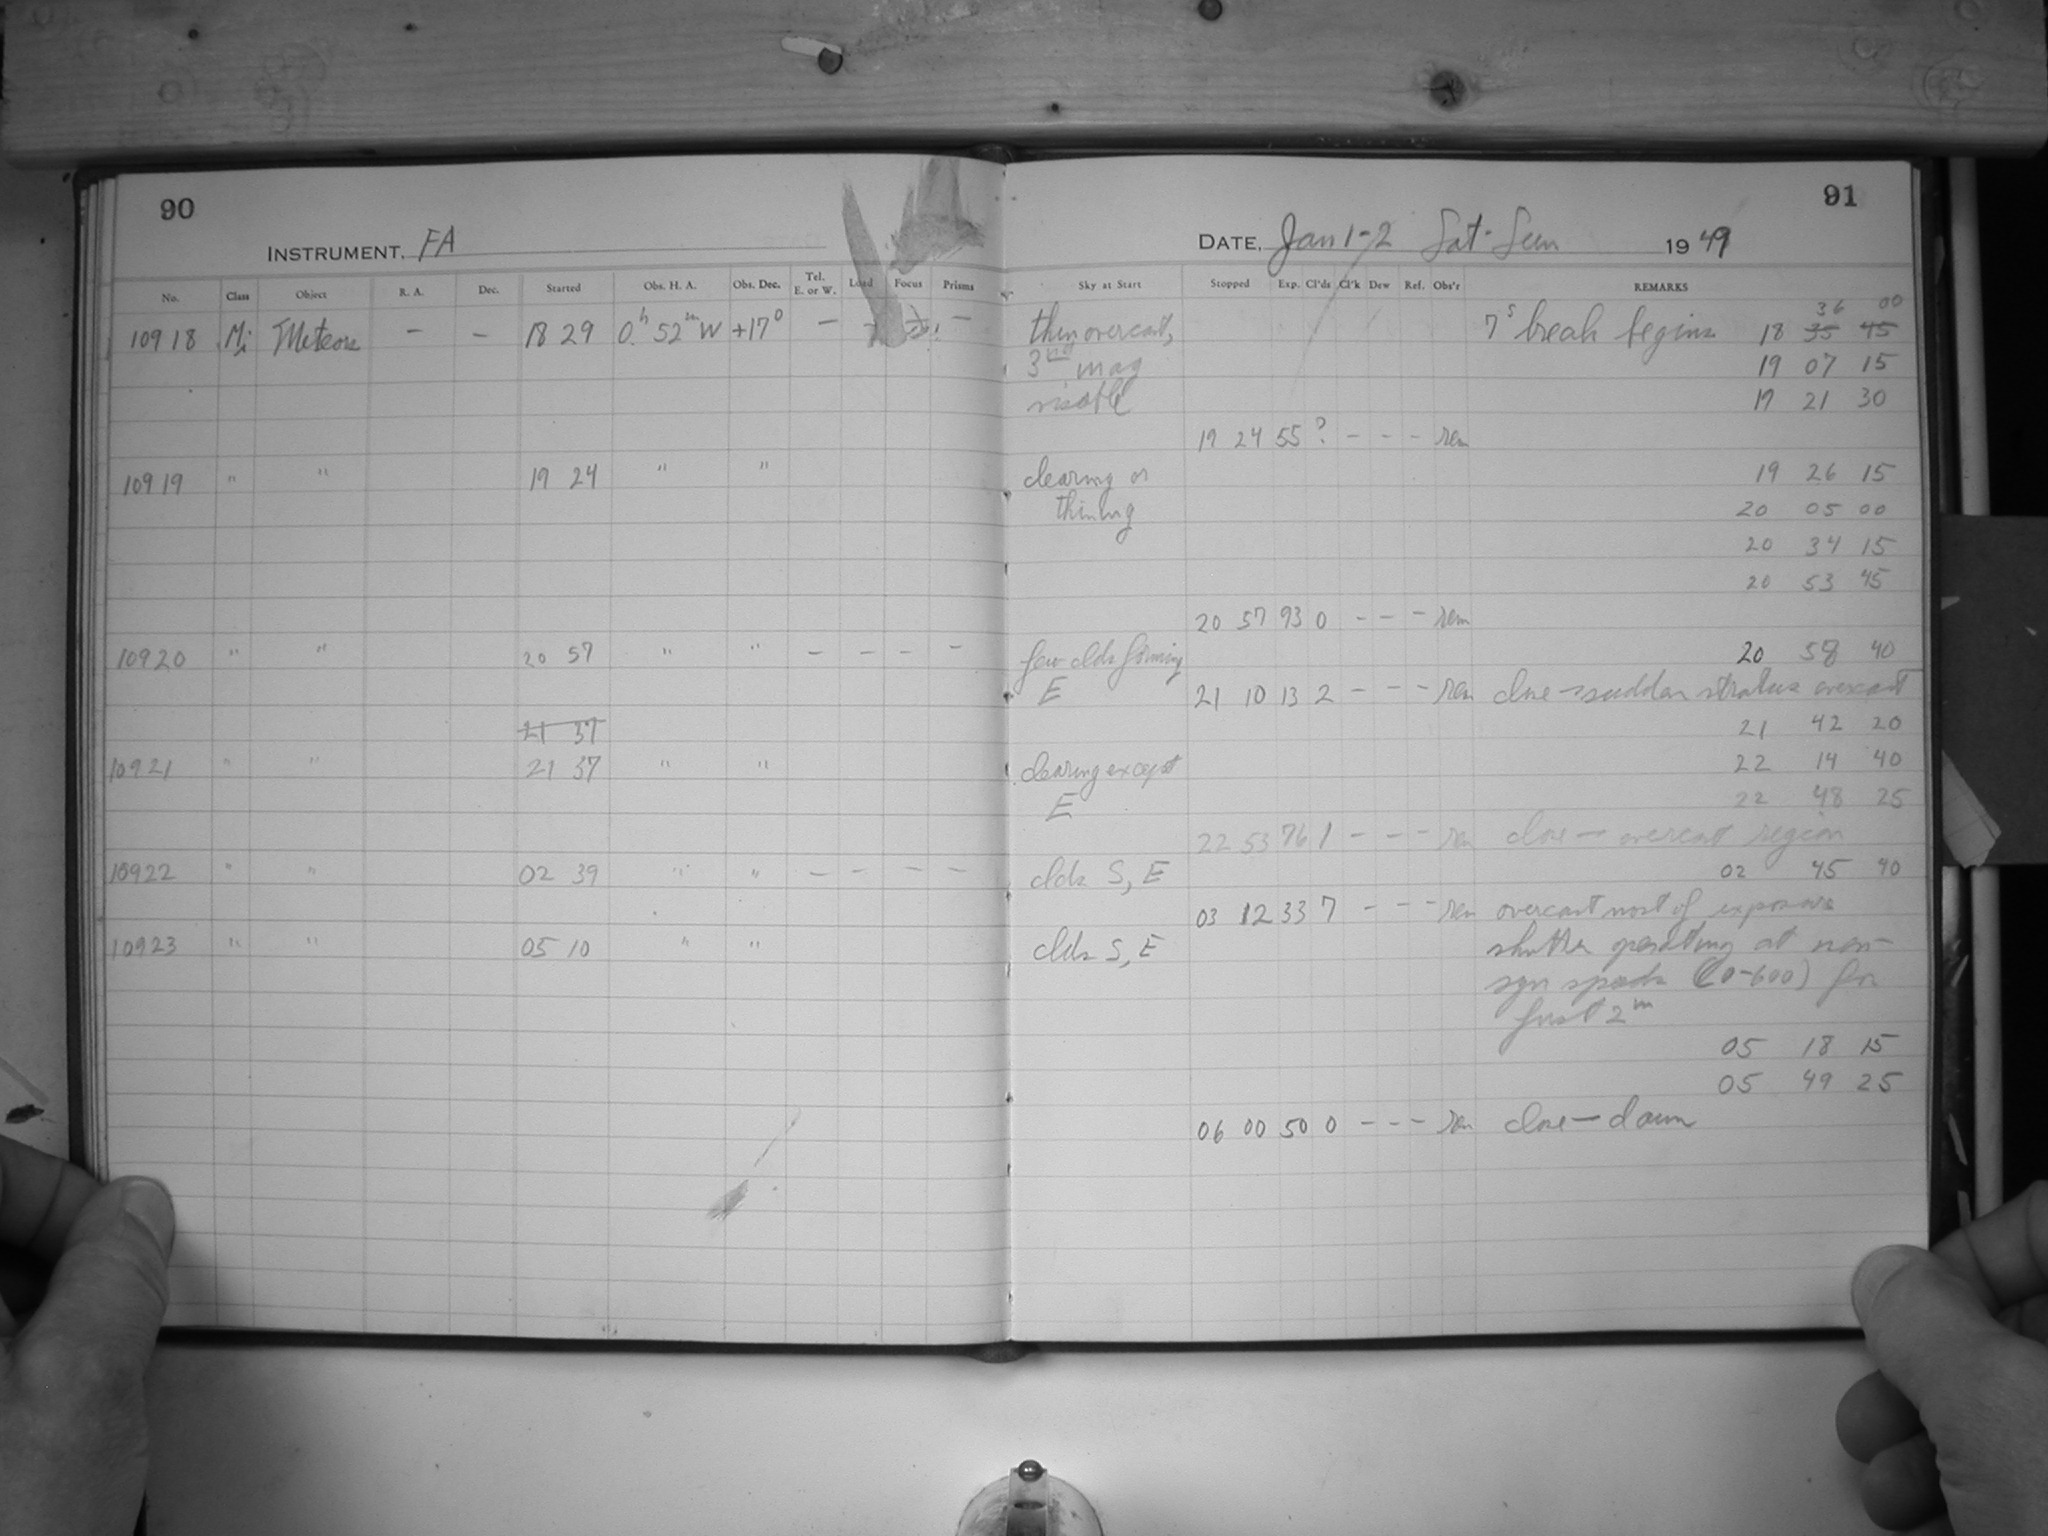 90
INSTRUMENT, FA
No. Class Object R. A. Dec. Started Obs. H. A. Obs. Dec. Tel. E. or W. Load Focus Prisms
10918 Meteors - - 18 29 0h 52m W +17° - -
10919 " " 19 24 " "
10920 " " 20 57 " " - - - -
21 37
10921 " " 21 37 " "
10922 " " 02 39 " " - - - -
10923 " " 05 10 " "
91
DATE, Jan 1-2 Sat-Sun 1949
Sky at Start Stopped Exp. Cl'ds Cl'k Dew Ref. Obs'r REMARKS
36 00
thin overcast, 7s break begins 18 35 45
3rd mag 19 07 15
visible 19 21 30
19 24 55 ? - - - rem
clearing or 19 26 15
thining 20 05 00
20 34 15
20 53 45
20 57 93 0 - - - rem
few clds forming 20 58 40
E 21 10 13 2 - - - rem close - sudden stratus overcast
21 42 20
clearing except 22 14 40
E 22 48 25
22 53 76 1 - - - rem close - overcast region
clds S, E 02 45 40
03 12 33 7 - - - rem overcast most of exposure
clds S, E shutter operating at non-
syn speeds (0-600) for
first 2m
05 18 15
05 49 25
06 00 50 0 - - - rem close - dawn